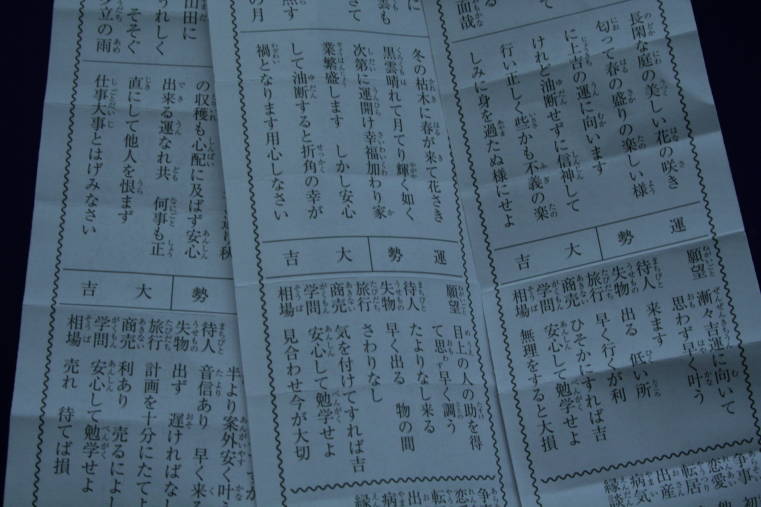 面哉
て
長閑な庭の美しい花の咲き
匂って春の盛りの楽しい様
に上吉の運に向います
けれど油断せずに信神して
行い正しく些かも不義の楽
しみに身を過たぬ様にせよ
運勢 大吉
願望 漸々吉運に向いて
思わず早く叶う
待人 来ます
失物 出る 低い所
旅行 早く行くが利
商売 ひそかにすれば吉
学問 安心して勉学せよ
相場 無理をすると大損
争事
恋愛
転居
出産
病気
縁談
に
雲も
さて
照す
の月
冬の枯木に春が来て花さき
黒雲晴れて月てり輝く如く
次第に運開け幸福加わり家
業繁盛します しかし安心
して油断すると折角の幸が
禍となります用心しなさい
運勢 大吉
願望 目上の人の助を得
て思わず早く調う
待人 たよりなし来る
失物 早く出る 物の間
旅行 さわりなし
商売 気を付けてすれば吉
学問 安心して勉学せよ
相場 見合わせ今が大切
争
恋
転
出
病
縁
山田に
うれしく
そそぐ
夕立の雨
の収穫も心配に及ばず安心
出来る運なれ共 何事も正
直にして他人を恨まず
仕事大事とはげみなさい
勢 大吉
半より案外安く叶
待人 音信あり 早く来る
失物 出ず 遅ければな
旅行 計画を十分にたてよ
商売 利あり 売るによし
学問 安心して勉学せよ
相場 売れ 待てば損